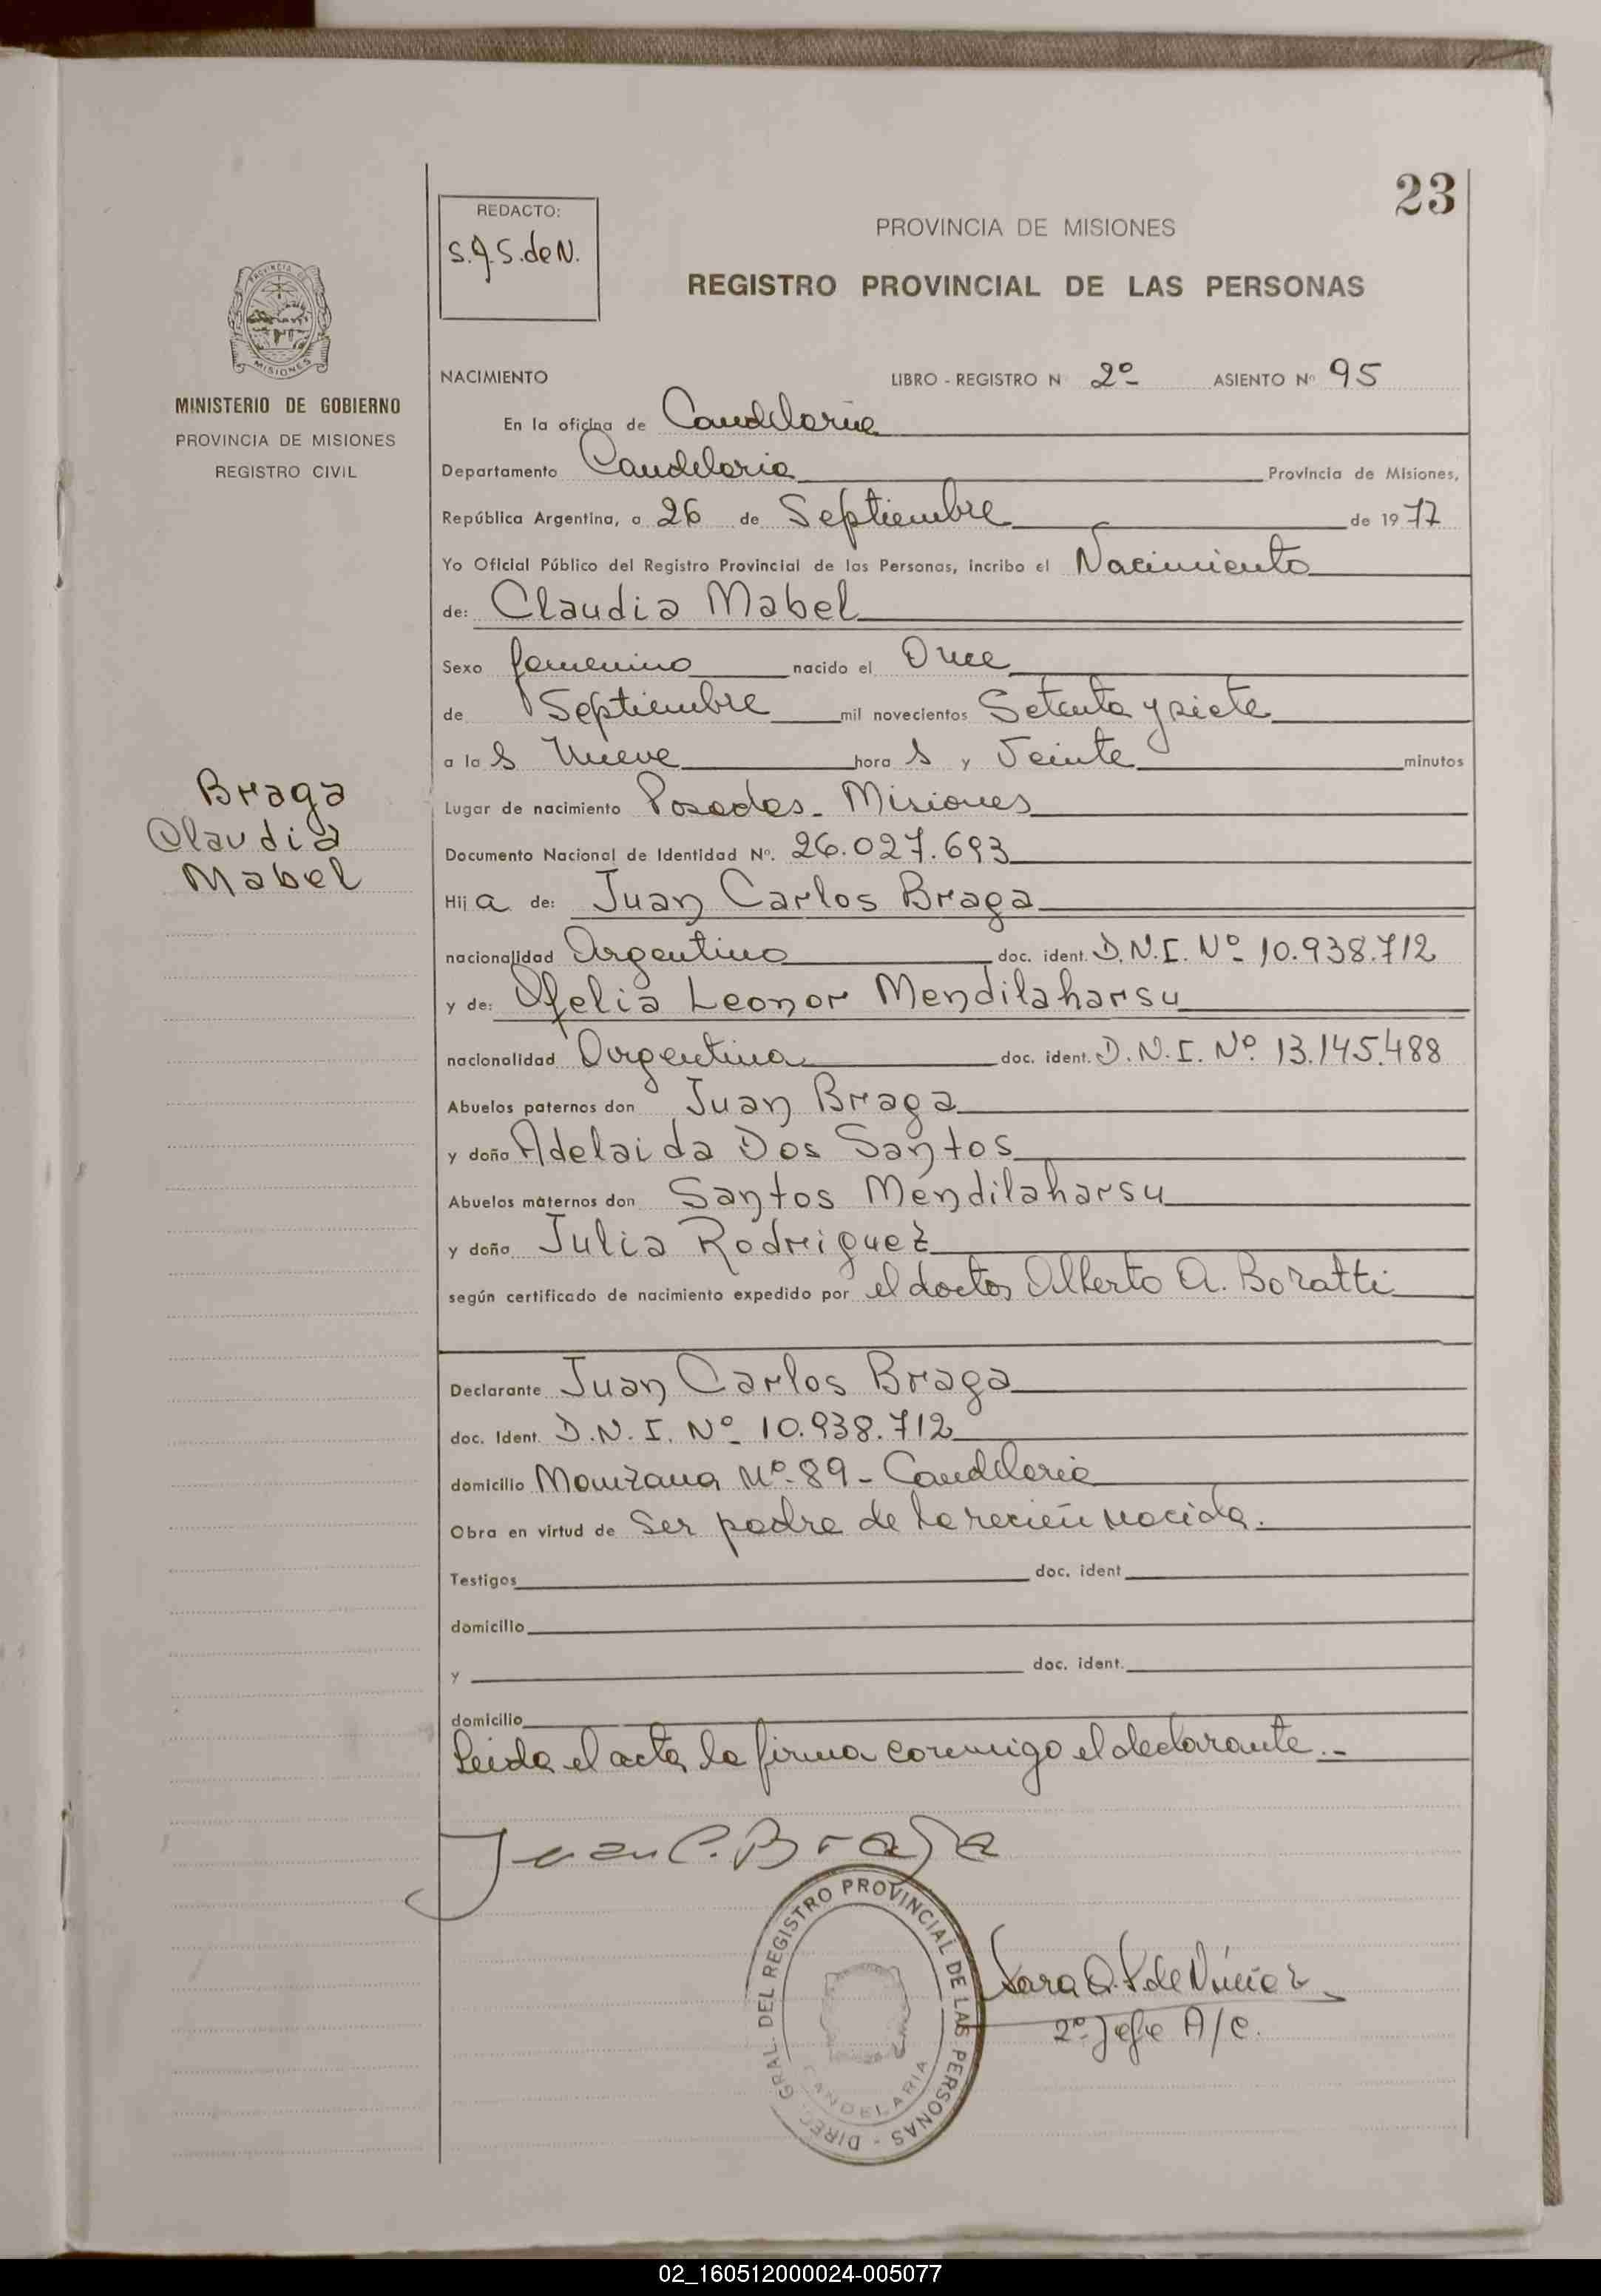 23
REDACTO:
S.J.S. de N.
PROVINCIA DE MISIONES
REGISTRO PROVINCIAL DE LAS PERSONAS
MISIONES
MINISTERIO DE GOBIERNO
PROVINCIA DE MISIONES
REGISTRO CIVIL
NACIMIENTO LIBRO - REGISTRO N 2º ASIENTO Nº 95
En la oficina de Candelaria
Departamento Candelaria Provincia de Misiones,
República Argentina, a 26 de Septiembre de 1977
Yo Oficial Público del Registro Provincial de las Personas, incribo el Nacimiento
de: Claudia Mabel
Sexo femenino nacido el Once
de Septiembre mil novecientos Setenta y siete
a las Nueve horas y Veinte minutos
Lugar de nacimiento Posadas - Misiones
Documento Nacional de Identidad Nº. 26.027.693
Braga
Claudia
Mabel
Hija de: Juan Carlos Braga
nacionalidad Argentino doc. ident. D.N.I. Nº 10.938.712
y de: Ofelia Leonor Mendilaharsu
nacionalidad Argentina doc. ident. D.N.I. Nº 13.145.488
Abuelos paternos don Juan Braga
y doña Adelaida Dos Santos
Abuelos maternos don Santos Mendilaharsu
y doña Julia Rodriguez
según certificado de nacimiento expedido por el doctor Alberto A. Boratti
Declarante Juan Carlos Braga
doc. Ident. D.N.I. Nº 10.938.712
domicilio Manzana Nº 89 - Candelaria
Obra en virtud de Ser padre de la recién nacida.
Testigos doc. ident
domicilio
y doc. ident.
domicilio
Leida el acta, la firma conmigo el declarante.-
Juan C. Braga
DIREC. GRAL. DEL REGISTRO PROVINCIAL DE LAS PERSONAS -
CANDELARIA
Sara de Núñez
2º Jefe A/C.
02_160512000024-005077